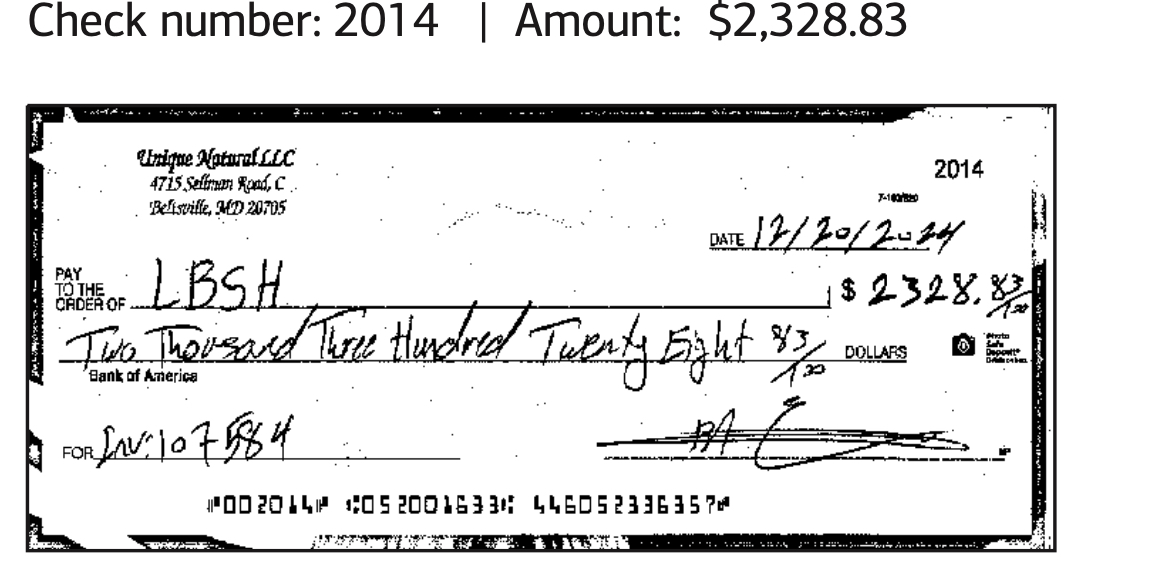 Check number: 2014 | Amount: $2,328.83
Unique Natural LLC
2014
4715 Sellman Road, C
Beltsville, MD 20705
DATE 12/20/2024
PAY TO THE ORDER OF LBSH $ 2328.83/100
Two Thousand Three Hundred Twenty Eight 83/100 DOLLARS
Photo Safe Deposit®
Bank of America
FOR Inv:107584
⑈002014⑈ ⑆052001633⑆ 446052336357⑈